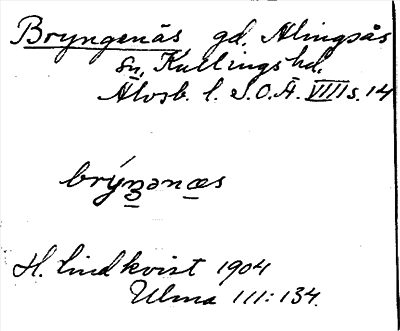 Bryngenäs gd, Alingsås
sn, Kullings hd,
Älvsb. l. S.O.Ä. VIII s. 14
brýŋənæs
H. Lindkvist 1904
Ulma 111:134.